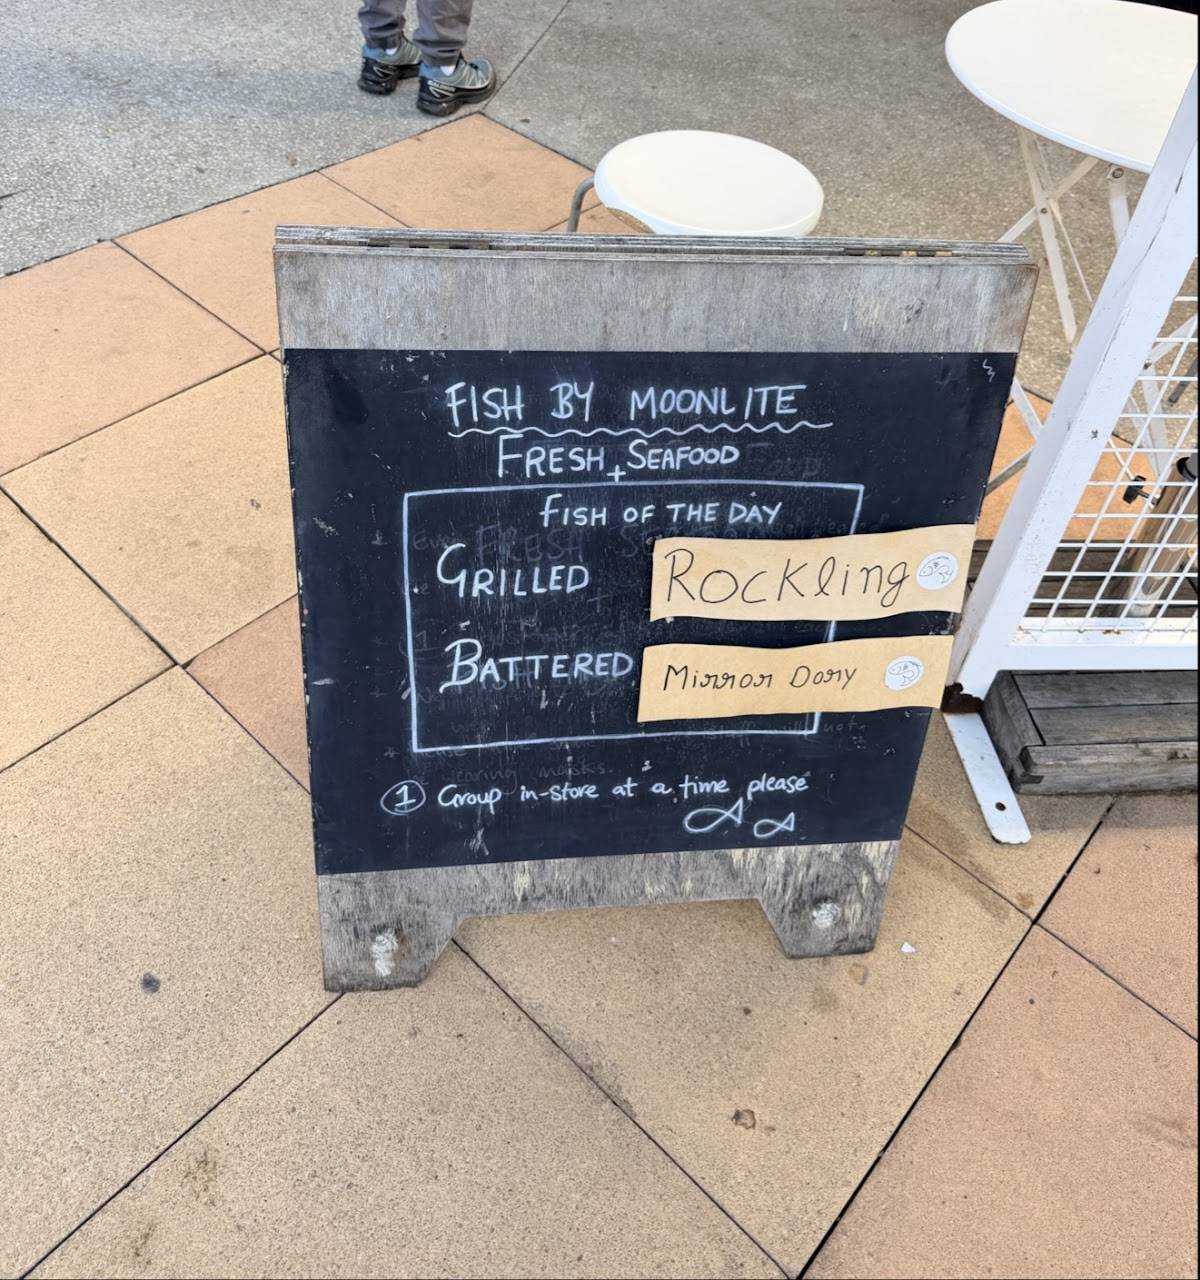 FISH BY MOONLITE
FRESH SEAFOOD
+
FISH OF THE DAY
GRILLED Rockling
BATTERED Mirror Dory
1 Group in-store at a time please